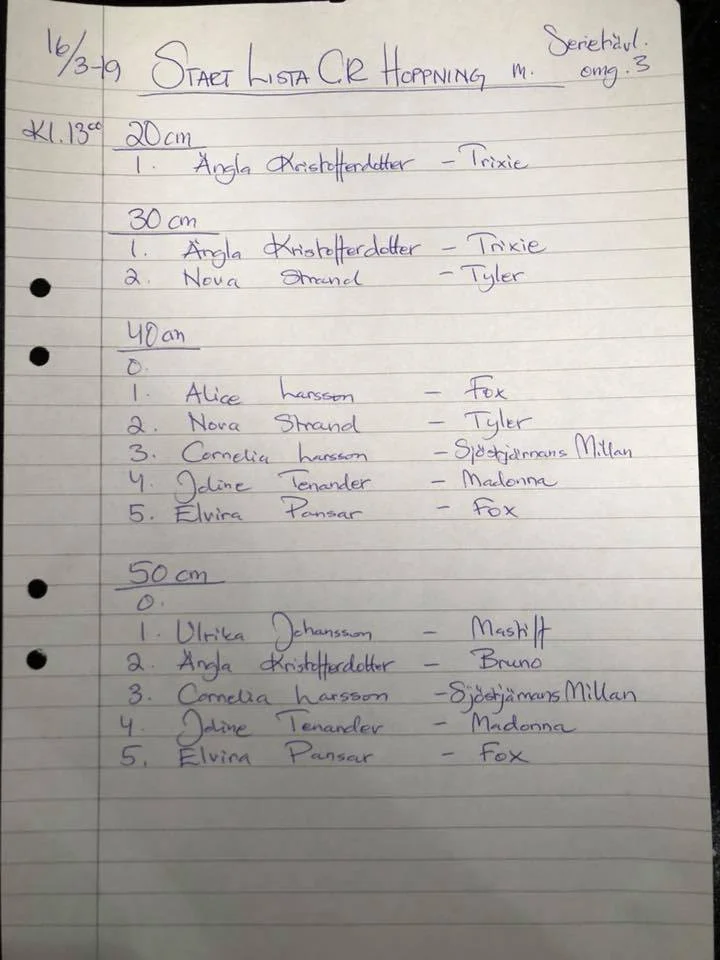 16/3-19 START LISTA CR HOPPNING m. Seriehävl. omg. 3
Kl. 13⁰⁰ 20 cm
1. Ängla Kristofferdotter - Trixie
30 cm
1. Ängla Kristofferdotter - Trixie
2. Nova Strand - Tyler
40 cm
0.
1. Alice Larsson - Fox
2. Nova Strand - Tyler
3. Cornelia Larsson - Sjöstjärnans Millan
4. Idine Tenander - Madonna
5. Elvira Pansar - Fox
50 cm
0.
1. Ulrika Johansson - Mastiff
2. Ängla Kristofferdotter - Bruno
3. Cornelia Larsson - Sjöstjärnans Millan
4. Idine Tenander - Madonna
5. Elvira Pansar - Fox